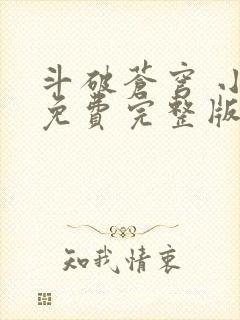 斗破苍穹 小
免费完整版
知我情衷